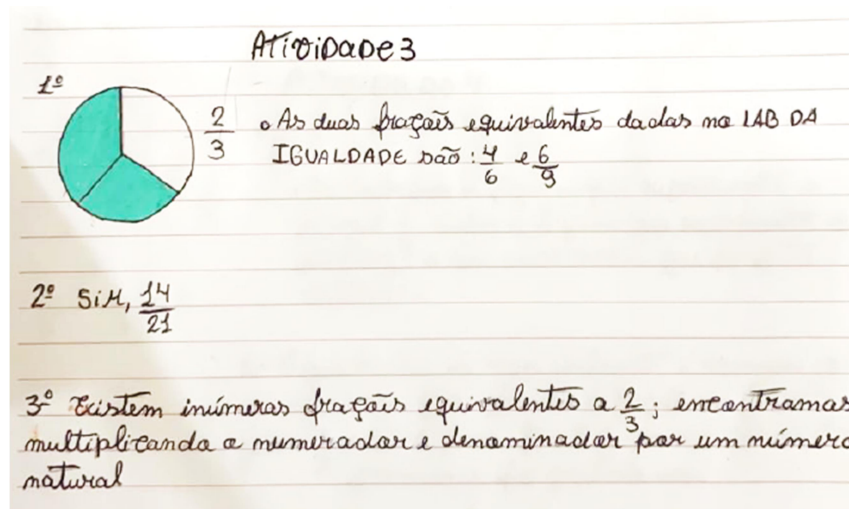 ATiviDaDe 3
1º
2/3 • As duas frações equivalentes dadas no LAB DA
IGUALDADE são: 4/6 e 6/9
2º SiM, 14/21
3º Existem inúmeras frações equivalentes a 2/3; encontramos
multiplicando o numerador e denominador por um número
natural